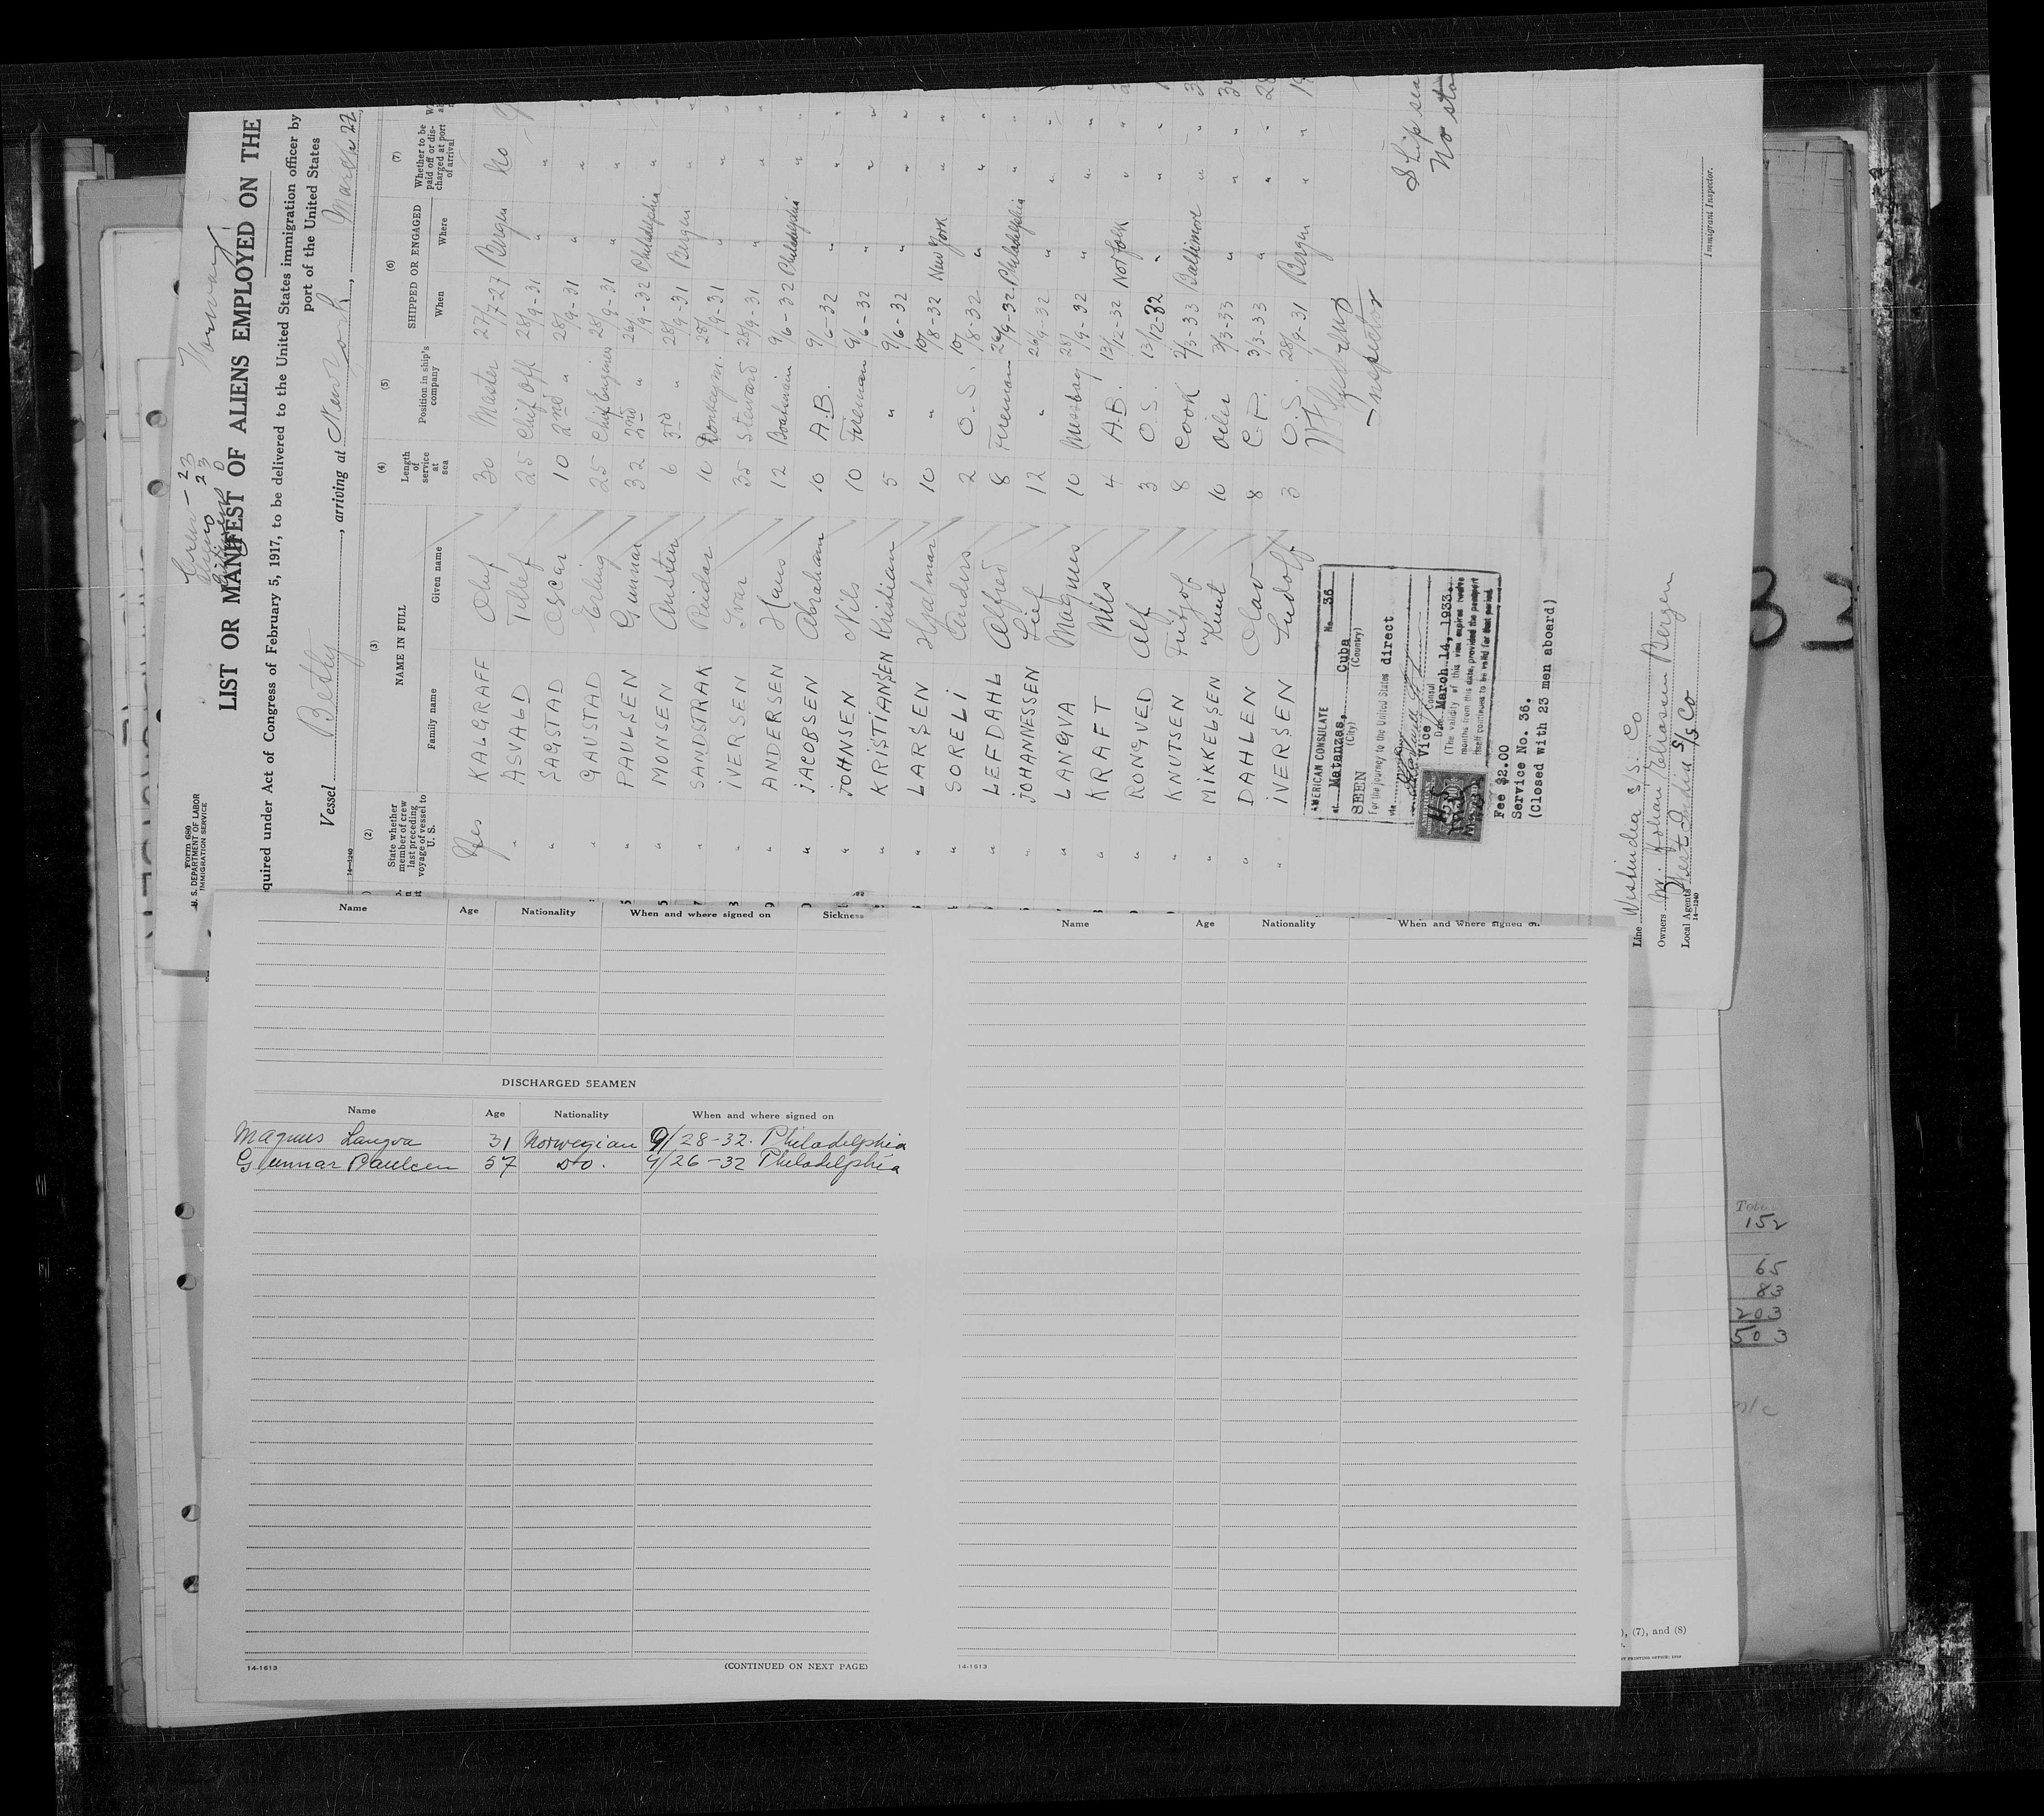 Form 680
U. S. DEPARTMENT OF LABOR
IMMIGRATION SERVICE
Crew - 23
23
Norway
LIST OR MANIFEST OF ALIENS EMPLOYED ON THE
quired under Act of Congress of February 5, 1917, to be delivered to the United States immigration officer by
port of the United States
Vessel Betty, arriving at New York, March 22,
14—1240
(2) (3) (4) (5) (6) (7)
State whether member of crew last preceding voyage of vessel to U. S.
NAME IN FULL
Family name Given name
Length of service at sea
Position in ship's company
SHIPPED OR ENGAGED
When Where
Whether to be paid off or discharged at port of arrival
Yes KALGRAFF Oluf 30 Master 27/7-27 Bergen No
" ASVALD Tellef 25 Chief Off 28/9-31 " "
" SAGSTAD Oscar 10 2nd " 28/9-31 " "
" GAUSTAD Erling 25 Chief Engineer 28/9-31 " "
" PAULSEN Gunnar 32 2nd " 26/9-32 Philadelphia "
" MONSEN Audsten 6 3rd " 28/9-31 Bergen "
" SANDSTRAK Reidar 10 Donkeym. 28/9-31 " "
" IVERSEN Ivar 35 Steward 28/9-31 " "
" ANDERSEN Hans 12 Boatswain 9/6-32 Philadelphia "
" JACOBSEN Abraham 10 A.B. 9/6-32 " "
" JOHNSEN Nils 10 Fireman 9/6-32 " "
" KRISTIANSEN Kristian 5 " 9/6-32 " "
" LARSEN Hjalmar 10 " 10/8-32 New York "
" SORELI Anders 2 O.S. 10/8-32 " "
" LEFDAHL Alfred 8 Fireman 26/9-32 Philadelphia "
" JOHANNESSEN Leif 12 " 26/9-32 " "
" LANGVA Magnus 10 Messboy 28/9-32 " "
" KRAFT Nils 4 A.B. 13/12-32 Norfolk "
" RONGVED Alf 3 O.S. 13/12-32 " "
" KNUTSEN Fritjof 8 Cook 2/3-33 Baltimore "
" MIKKELSEN Knut 10 Oiler 3/3-33 " "
" DAHLEN Olav 8 C.P. 3/3-33 " "
" IVERSEN Ludolf 3 O.S. 28/9-31 Bergen "
Inspector
AMERICAN CONSULATE No 36
at Matanzas, Cuba
(City) (Country)
SEEN
For the journey to the United States direct
via
Vice Consul
Date March 14, 1933.
(The validity of this visa expires twelve
months from this date, provided the passport
itself continues to be valid for that period.
Fee $2.00
Service No. 36.
(Closed with 23 men aboard)
Line Westindia S.S. Co
Owners Johan Eliassen Bergen
Local Agents West India S/S Co
14—1240
Immigrant Inspector.
Name Age Nationality When and where signed on Sickness
DISCHARGED SEAMEN
Name Age Nationality When and where signed on
Magnus Langva 31 Norwegian 9/28-32. Philadelphia
Gunnar Paulsen 57 do. 9/26-32 Philadelphia
14-1613
(CONTINUED ON NEXT PAGE)
Name Age Nationality When and where signed on
14-1613
Total
152
65
83
203
503
), (7), and (8)